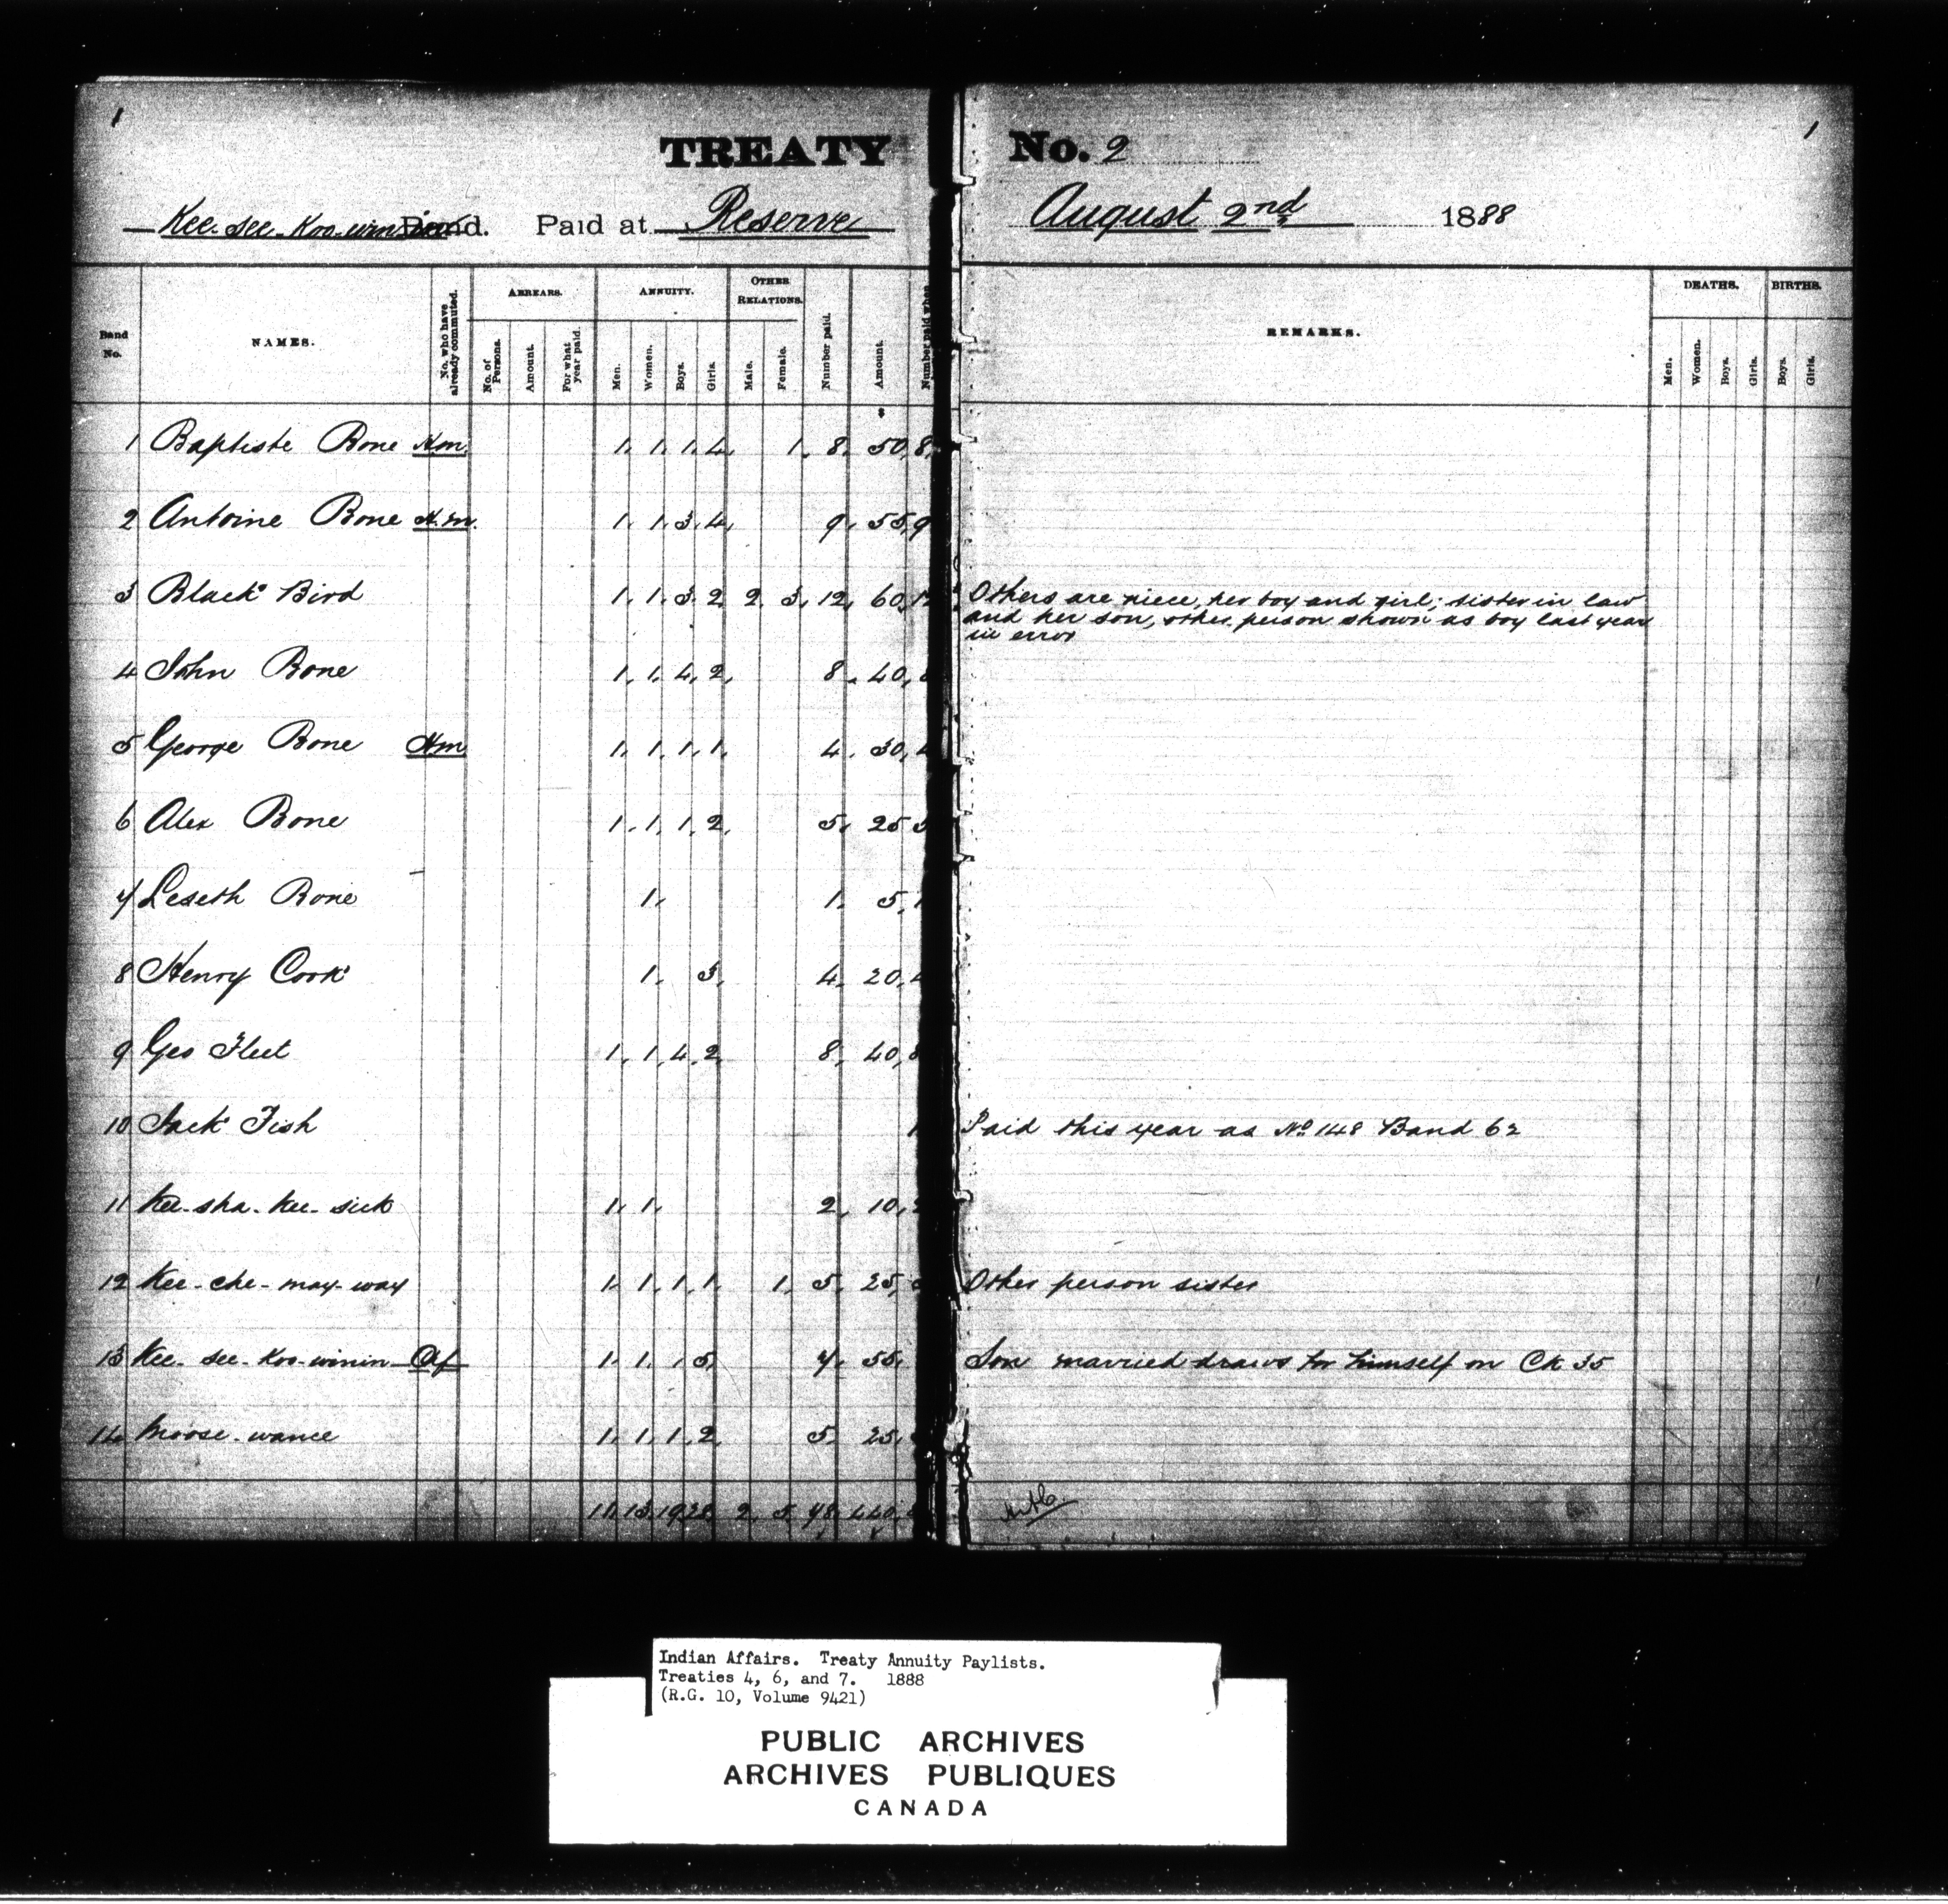 1 1
TREATY No. 2
Kee-see-koo-winin Band. Paid at Reserve August 2nd 1888
Band No. NAMES. No. who have already commuted. ARREARS. No. of Persons. Amount. For what year paid. ANNUITY. Men. Women. Boys. Girls. OTHER RELATIONS. Male. Female. Number paid. Amount. Number paid when REMARKS. DEATHS. Men. Women. Boys. Girls. BIRTHS. Boys. Girls.
1 Baptiste Bone Hm. 1. 1. 1. 4. 1. 8. 50. 8.
2 Antoine Bone H.m. 1. 1. 3. 4. 9. 55. 9
3 Black Bird 1. 1. 3. 2. 2. 3. 12. 60. 12 Others are niece, her boy and girl; sister in law
and her son, other person shown as boy last year
in error
4 John Bone 1. 1. 4. 2. 8. 40. 8
5 George Bone Hm 1. 1. 1. 1. 4. 30. 4
6 Alex Bone 1. 1. 1. 2. 5. 25 5
7 Leseth Bone 1. 1. 5. 1
8 Henry Cook 1. 3. 4. 20. 4
9 Geo Fleet 1. 1. 4. 2. 8. 40. 8
10 Jack Fish 1 Paid this year as No 148 Band 62
11 Kee-sha-kee-sick 1. 1. 2. 10. 2
12 Kee-che-may-way 1. 1. 1. 1. 1. 5. 25. Other person sister
13 Kee-see-koo-winin Cf 1. 1. 5. 7. 55. Son married draws for himself on Ck 35
14 Moose-wance 1. 1. 1. 2. 5. 25.
11. 13. 19 28. 2. 5. 78. 440.
Indian Affairs. Treaty Annuity Paylists.
Treaties 4, 6, and 7. 1888
(R.G. 10, Volume 9421)
PUBLIC ARCHIVES
ARCHIVES PUBLIQUES
CANADA